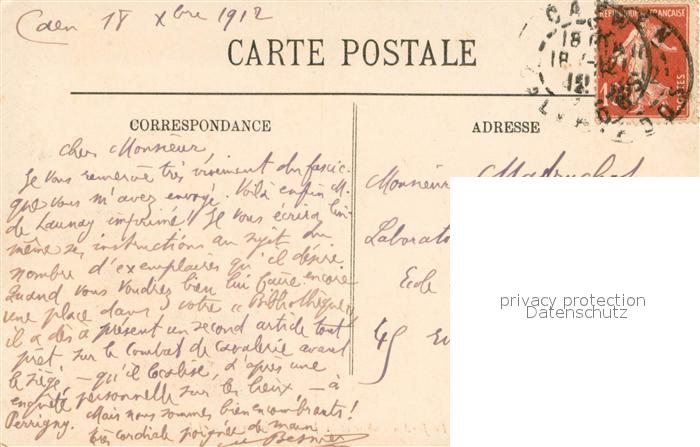 Caen 18 Xbre 1912
CARTE POSTALE
CORRESPONDANCE
ADRESSE
Cher Monsieur,
Je vous remercie très vivement du fascic.
que vous m'avez envoyé. Voilà enfin M.
de Launay imprimé! Je vous écrirai lui
même ses instructions au sujet du
nombre d'exemplaires qu'il désire.
Quand vous voudrez bien lui faire encore
une place dans votre "Bibliothèque",
il a dès à présent un second article tout
prêt, sur le combat de cavalerie avant
le siège, - qu'il localise, d'après une
enquête personnelle sur les lieux - à
Perrigny. Mais nous sommes bien encombrants!
Très cordiale poignée de main
Monsieur
Laborato
Ecole
45
REPUBLIQUE FRANÇAISE
POSTES
CAEN
CALVADOS
privacy protection
Datenschutz